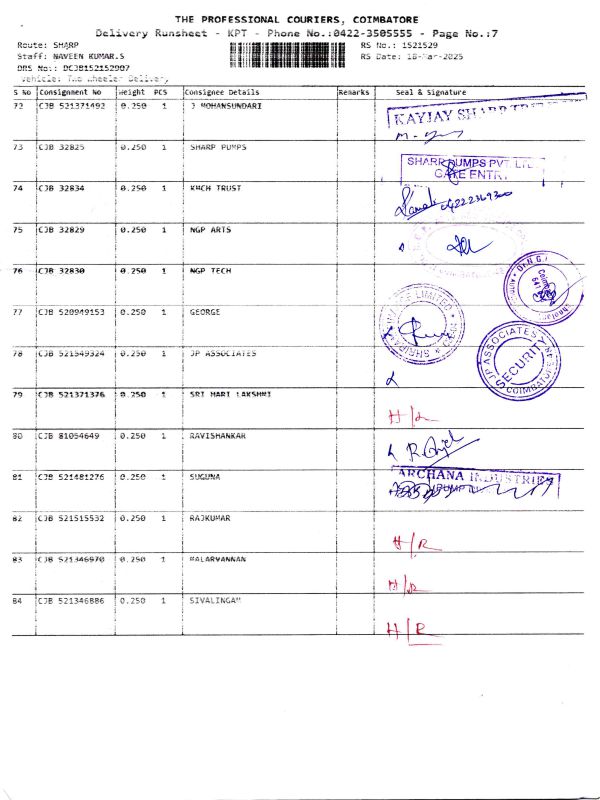 THE PROFESSIONAL COURIERS, COIMBATORE
Delivery Runsheet - KPT - Phone No.:0422-3505555 - Page No.:7
Route: SHARP
RS No.: 1521529
Staff: NAVEEN KUMAR.S
RS Date: 18-Mar-2025
DRS No:: DCJB152152907
Vehicle: Two Wheeler Delivery
S No Consignment No Weight PCS Consignee Details Remarks Seal & Signature
72 CJB 521371492 0.250 1 J MOHANSUNDARI
KAYJAY SHARP
73 CJB 32825 0.250 1 SHARP PUMPS
SHARP PUMPS PVT. LTD
GATE ENTRY
74 CJB 32834 0.250 1 KMCH TRUST
75 CJB 32829 0.250 1 NGP ARTS
76 CJB 32830 0.250 1 NGP TECH
77 CJB 520949153 0.250 1 GEORGE
78 CJB 521549324 0.250 1 JP ASSOCIATES
JP ASSOCIATES
SECURITY
COIMBATORE
79 CJB 521371376 0.250 1 SRI HARI LAKSHMI
H/R
80 CJB 81054649 0.250 1 RAVISHANKAR
81 CJB 521481276 0.250 1 SUGUNA
ARCHANA INDUSTRIES
82 CJB 521515532 0.250 1 RAJKUMAR
H/R
83 CJB 521346970 0.250 1 MALARVANNAN
H/R
84 CJB 521346886 0.250 1 SIVALINGAM
H/R